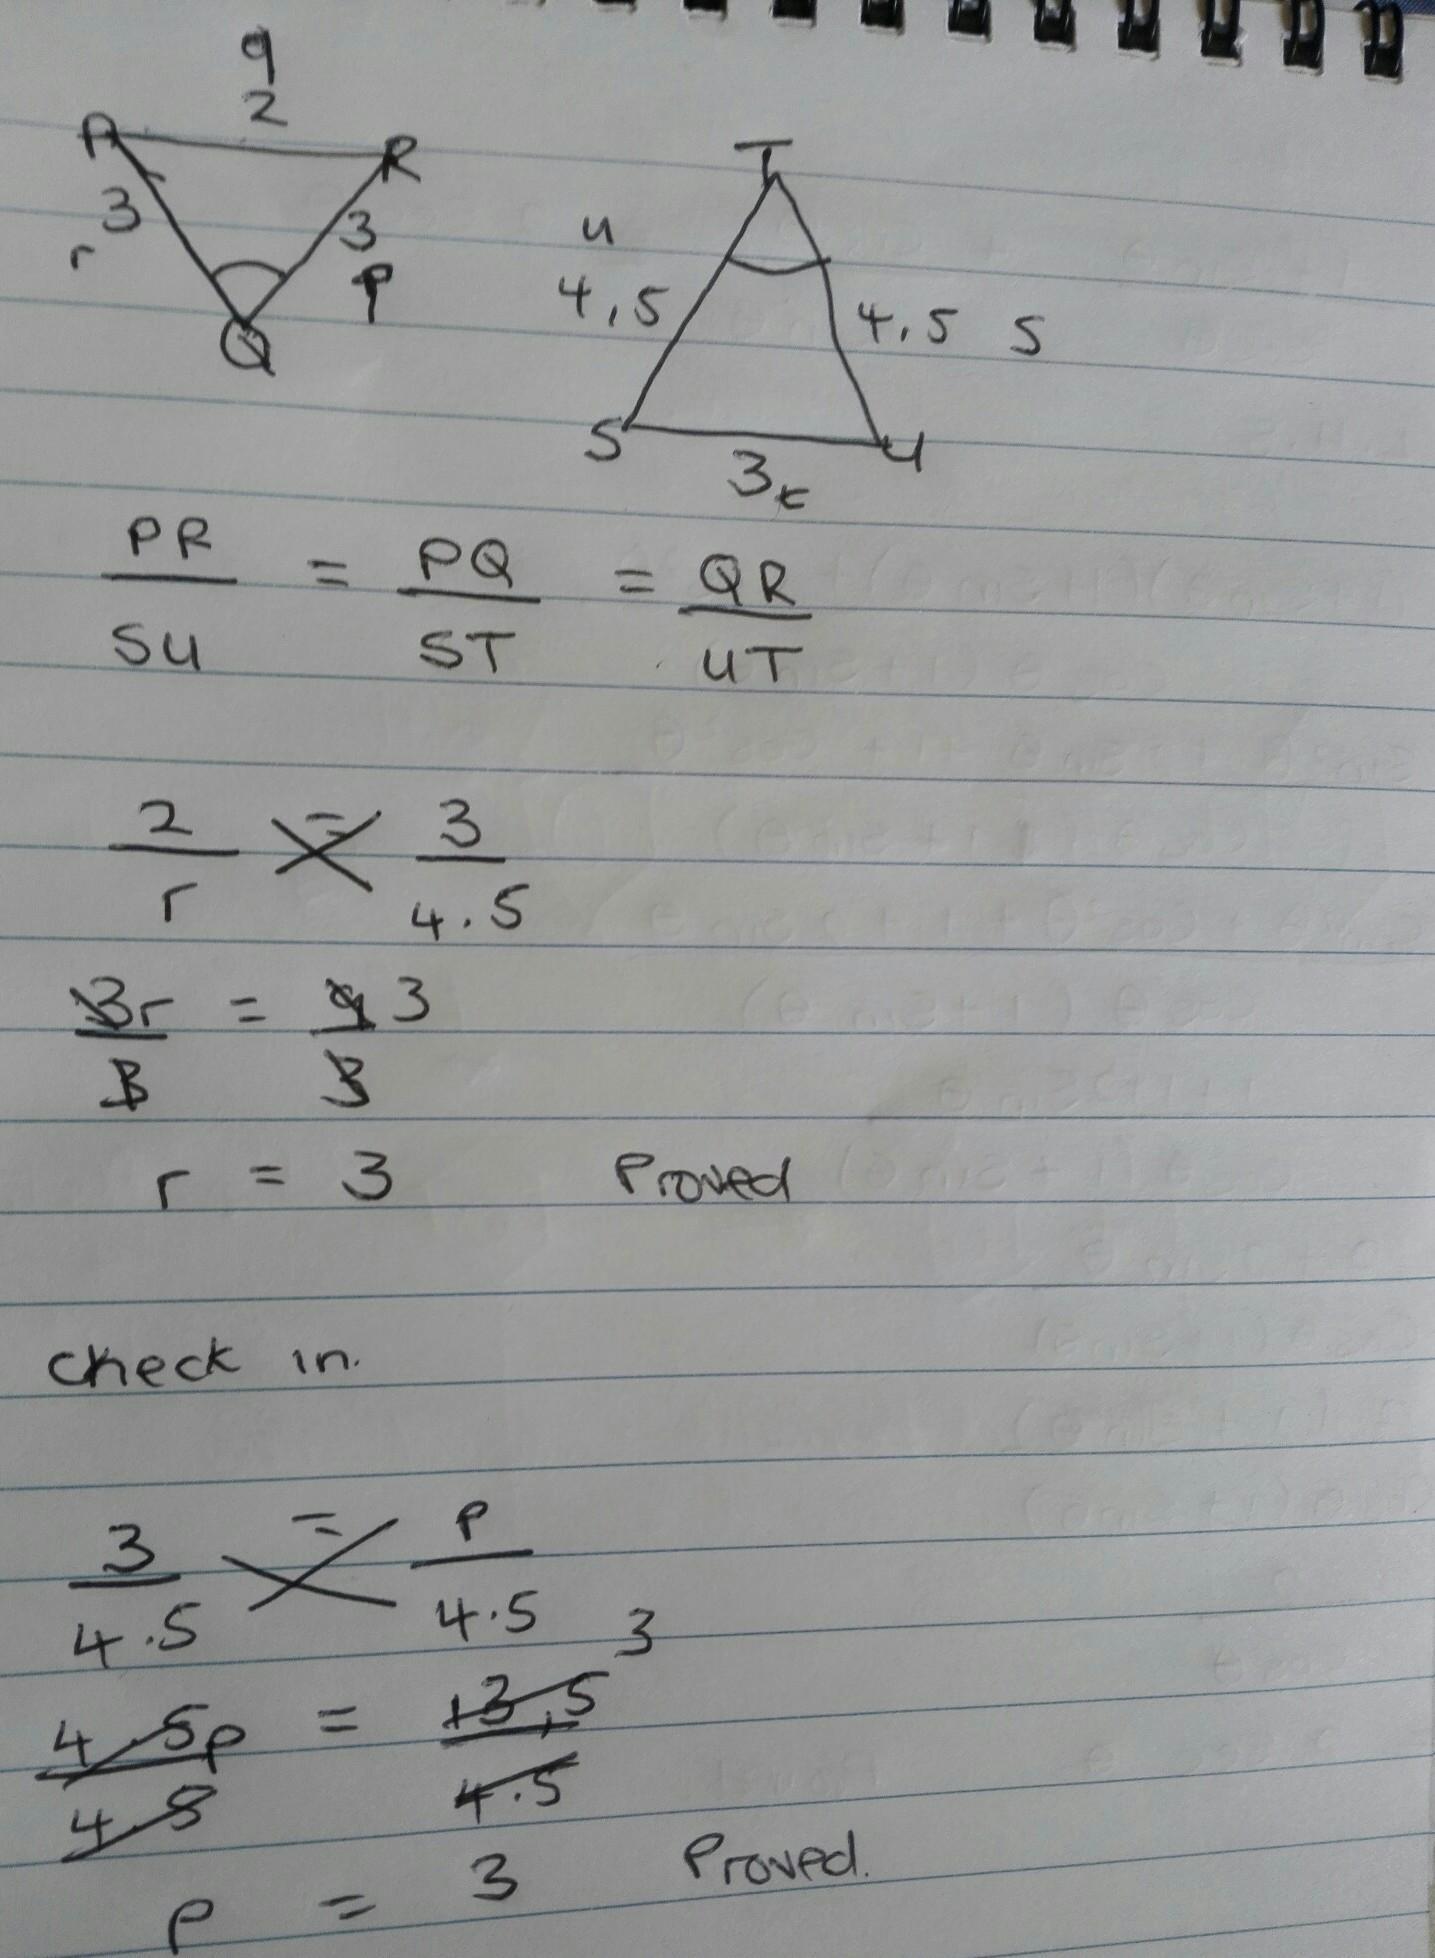 q
2
P R
3 3
r P
Q
T
u
4,5 4,5 s
S U
3 t
PR/SU = PQ/ST = QR/UT
2/r = 3/4.5
3r/3 = 9/3 3
r = 3 Proved
check in.
3/4.5 = P/4.5
4.5p/4.5 = 13,5/4.5 3
p = 3 Proved.